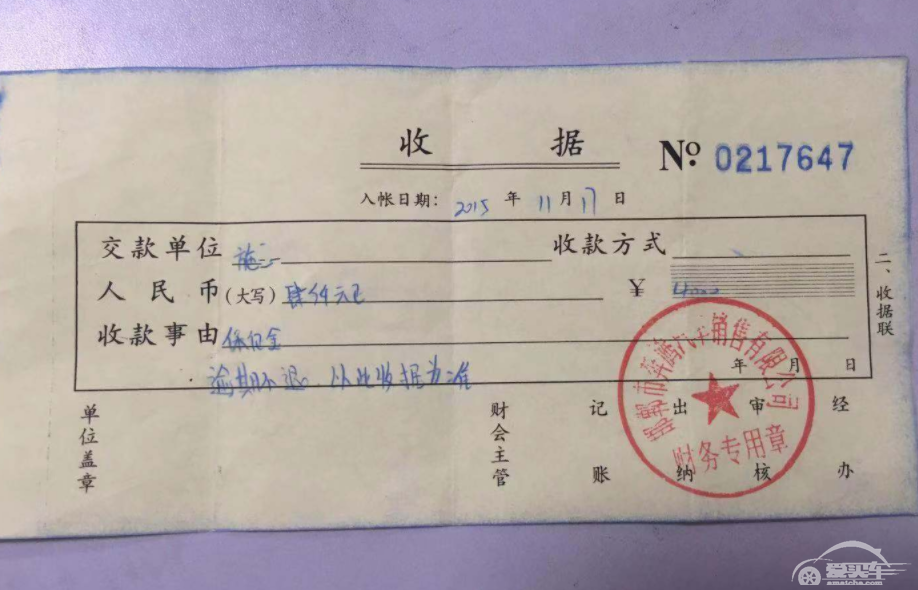 收 据 № 0217647
入帐日期: 2015 年 11 月 17 日
交款单位 收款方式
人民币(大写) 肆仟元正 ¥ 4000
收款事由 保证金
年 月 日
逾期不退 以此收据为准
二、收据联
单位盖章 财会主管 记账 出纳 审核 经办
邯郸市 汽车销售有限公司
财务专用章
爱买车
amaiche.com